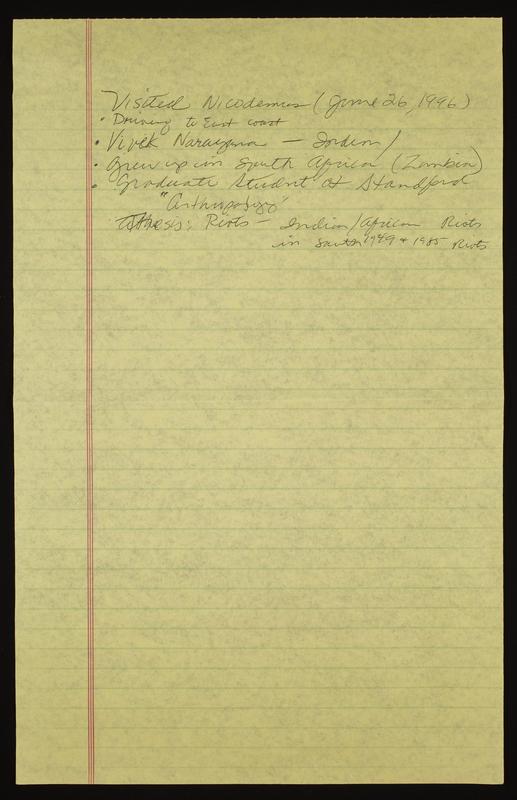 Visited Nicodemus (June 26, 1996)
• Driving to East coast
• Vivek Narayanan — Indian/
• Grew up in South Africa (Zambia)
• Graduate Student at Standford
"Anthropology"
Thesis: Riots — Indian/African Riots
in South 1949 & 1985 Riots